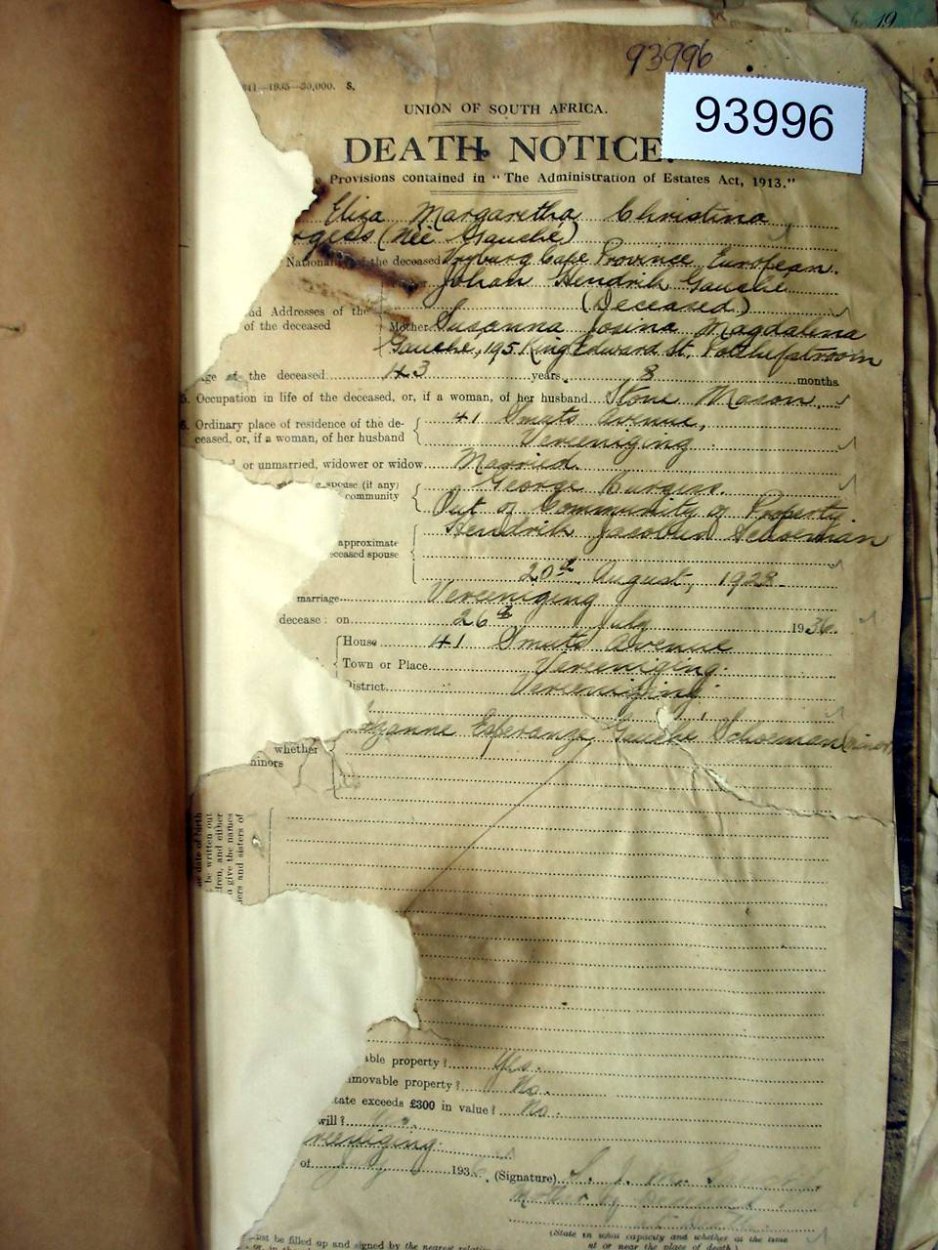 19
93996
93996
1935—30,000. S.
UNION OF SOUTH AFRICA.
DEATH NOTICE.
Provisions contained in "The Administration of Estates Act, 1913."
Eliza Margaretha Christina
gess (née Gauché)
Nationality of the deceased Vryburg Cape Province, European.
Johan Hendrik Gauché
(Deceased)
nd Addresses of the
of the deceased
Mother Susanna Josina Magdalena
Gauché, 195 King Edward St, Potchefstroom
ge of the deceased 43 years, 8 months
5. Occupation in life of the deceased, or, if a woman, of her husband Stone Mason.
6. Ordinary place of residence of the de-
ceased, or, if a woman, of her husband
41 Smuts Avenue,
Vereeniging
or unmarried, widower or widow Married.
spouse (if any)
community
George Burgess.
Out of Community of Property.
approximate
eceased spouse
Hendrik Jacobus Schoeman
20th August, 1928
marriage Vereeniging
decease: on 26th July 1936.
House 41 Smuts Avenue
Town or Place Vereeniging.
District Vereeniging.
Esperanza Gauché Schoeman
whether
minors
date of birth
be written out
dren, and either
give the names
ers and sisters of
able property? Yes.
movable property? No.
tate exceeds £300 in value? No.
will?
reeniging.
of 193 (Signature) S. J. M.
mother of deceased
(State in what capacity and whether at the time
at or near the place of death
ust be filled up and signed by the nearest